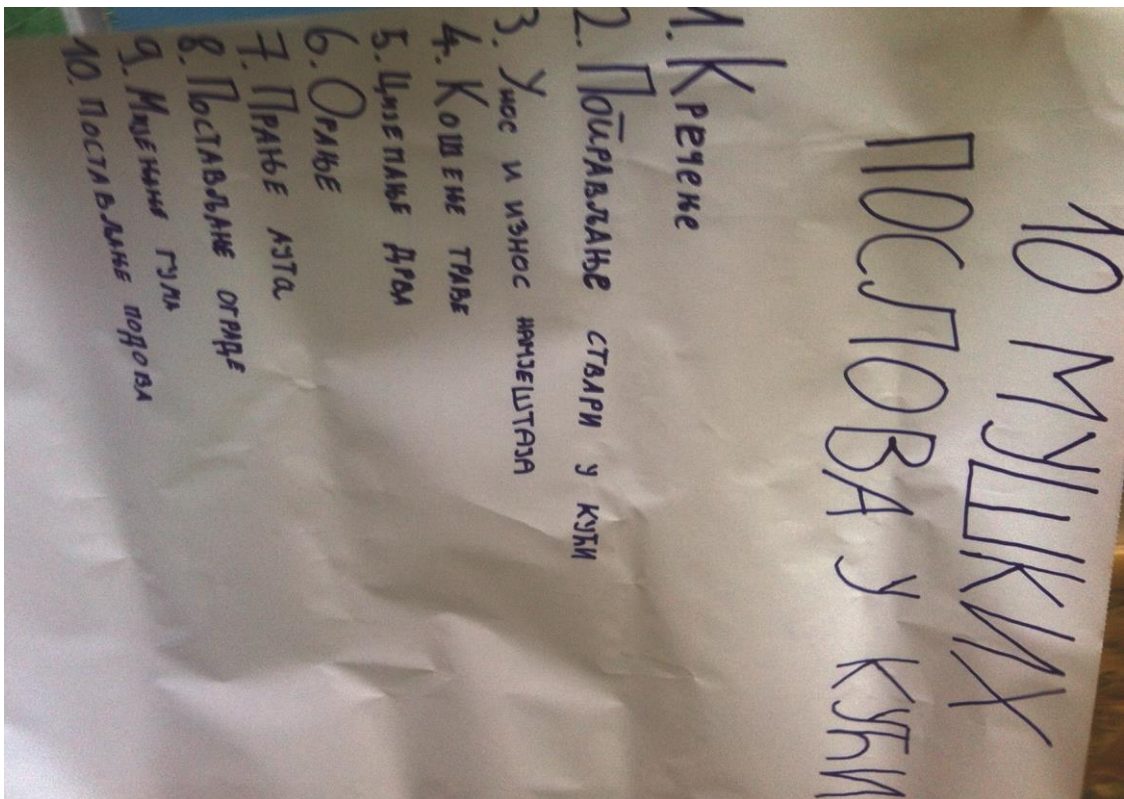 10 МУШКИХ
ПОСЛОВА У КУЋИ
1. Кречење
2. Поправљање ствари у кући
3. Унос и износ намјештаја
4. Кошење траве
5. Цијепање дрва
6. Орање
7. Прање аута
8. Постављане ограде
9. Мијењање гума
10. Постављање подова